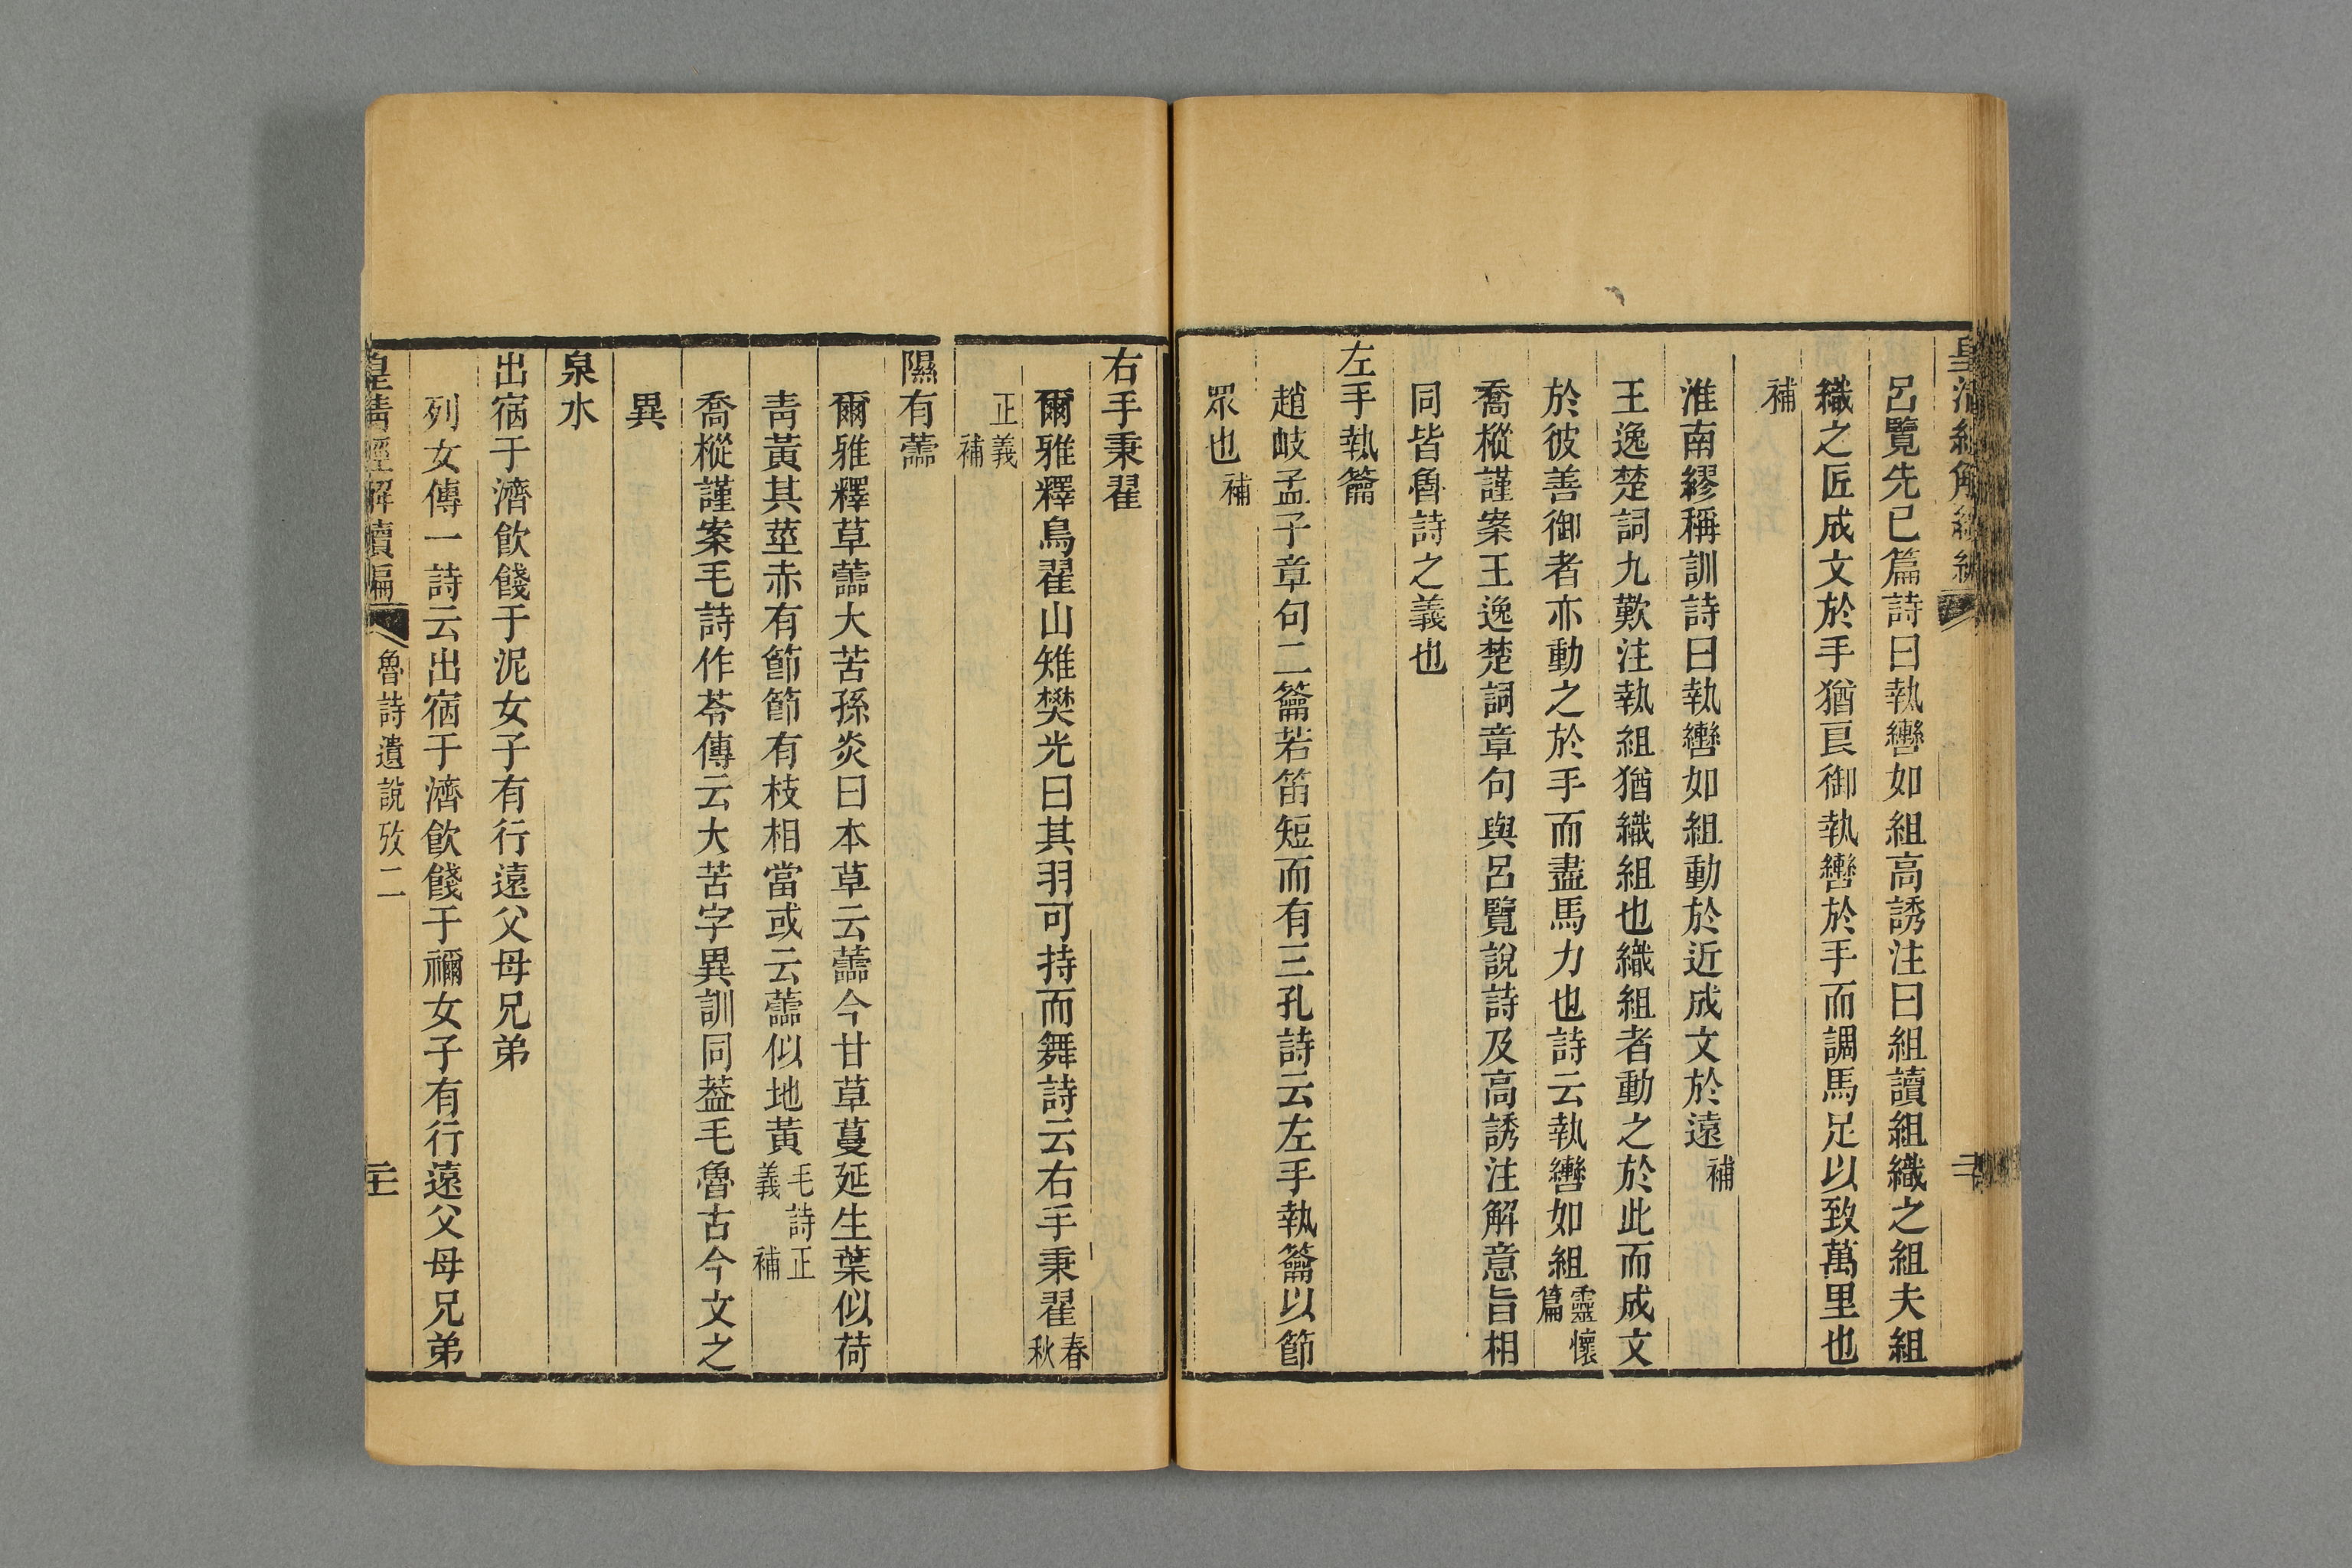 呂覽先已篇詩曰執轡如組高誘注曰組讀組織之組夫組
織之匠成文於手猶良御執轡於手而調馬足以致萬里也
補
淮南繆稱訓詩曰執轡如組動於近成文於遠補
王逸楚詞九歎注執組猶織組也織組者動之於此而成文
於彼善御者亦動之於手而盡馬力也詩云執轡如組靈懷篇
喬樅謹案王逸楚詞章句與呂覽說詩及高誘注解意旨相
同皆魯詩之義也
左手執籥
趙岐孟子章句二籥若笛短而有三孔詩云左手執籥以節
眾也補
右手秉翟
爾雅釋鳥翟山雉樊光曰其羽可持而舞詩云右手秉翟春秋
正義補
隰有蘦
爾雅釋草蘦大苦孫炎曰本草云蘦今甘草蔓延生葉似荷
靑黃其莖赤有節節有枝相當或云蘦似地黃毛詩正義補
喬樅謹案毛詩作苓傳云大苦字異訓同葢毛魯古今文之
異
泉水
出宿于濟飮餞于泥女子有行遠父母兄弟
列女傳一詩云出宿于濟飮餞于禰女子有行遠父母兄弟
皇淸經解續編
魯詩遺說攷二